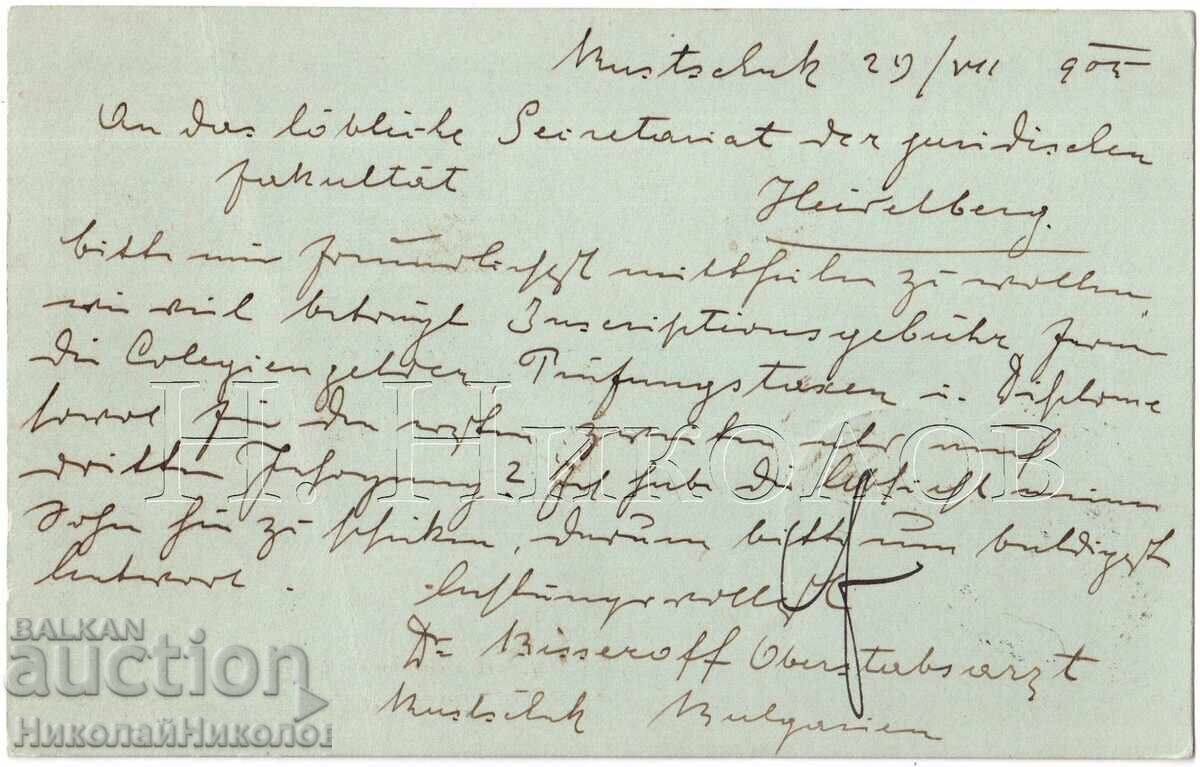 Rustschuk 29/VII 905
An das löbliche Secretariat der juridischen
Fakultät Heidelberg.
bitte mir freundlichst mittheilen zu wollen
wie viel beträgt Inscriptionsgebühr, ferner
die Colegiengelder, Prüfungstaxen u. Diplome
sowol für den ersten zweiten oder auch
dritten ? Ich habe die Absicht meinen
Sohn hin zu schiken, darum bitte um baldigst
Antwort.
Achtungsvollst
Dr Bisseroff Oberstabsarzt
Rustschuk Bulgarien
Н. Николов
BALKAN
auction
НиколайНиколов